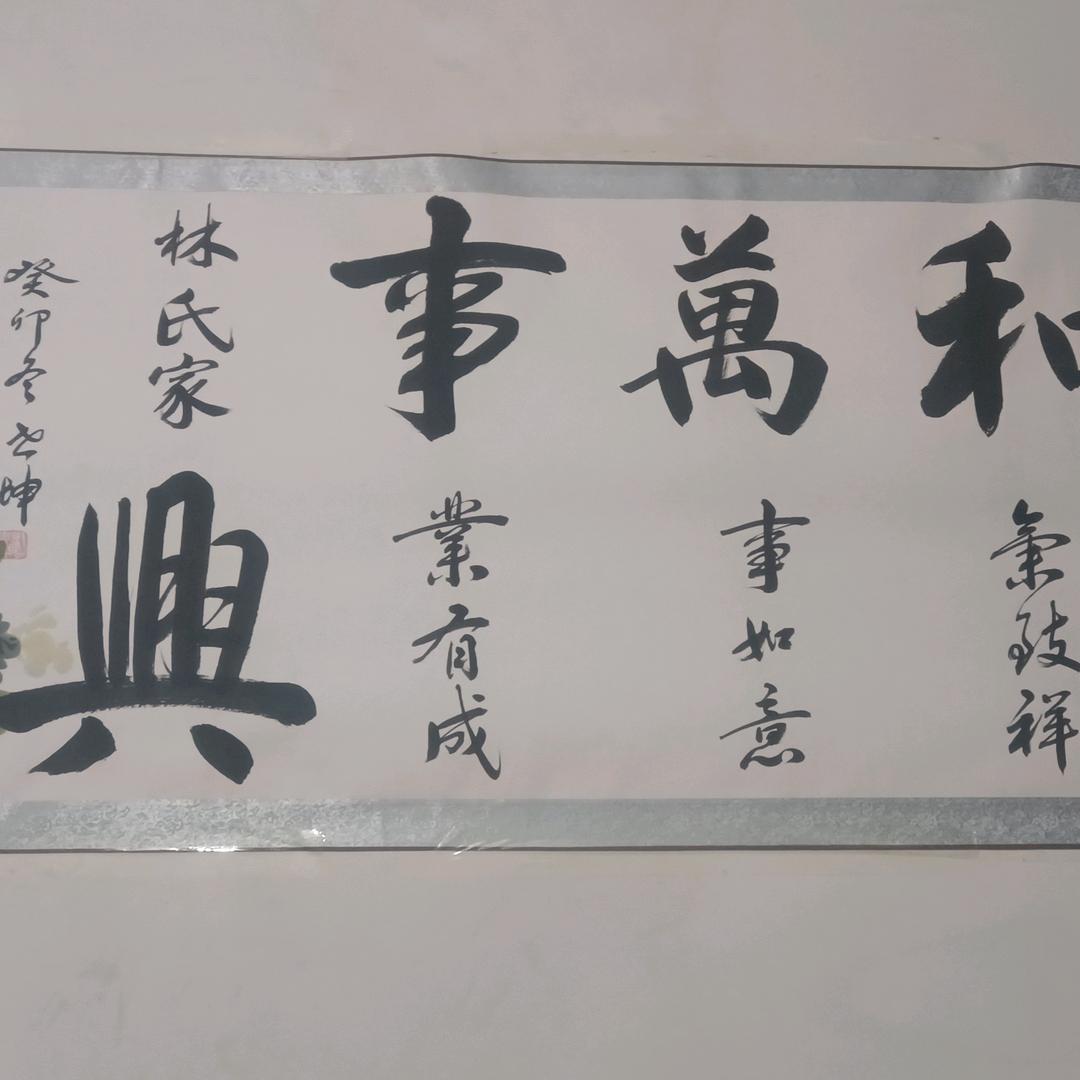 和氣致祥
萬事如意
事業有成
林氏家興
癸卯冬志坤